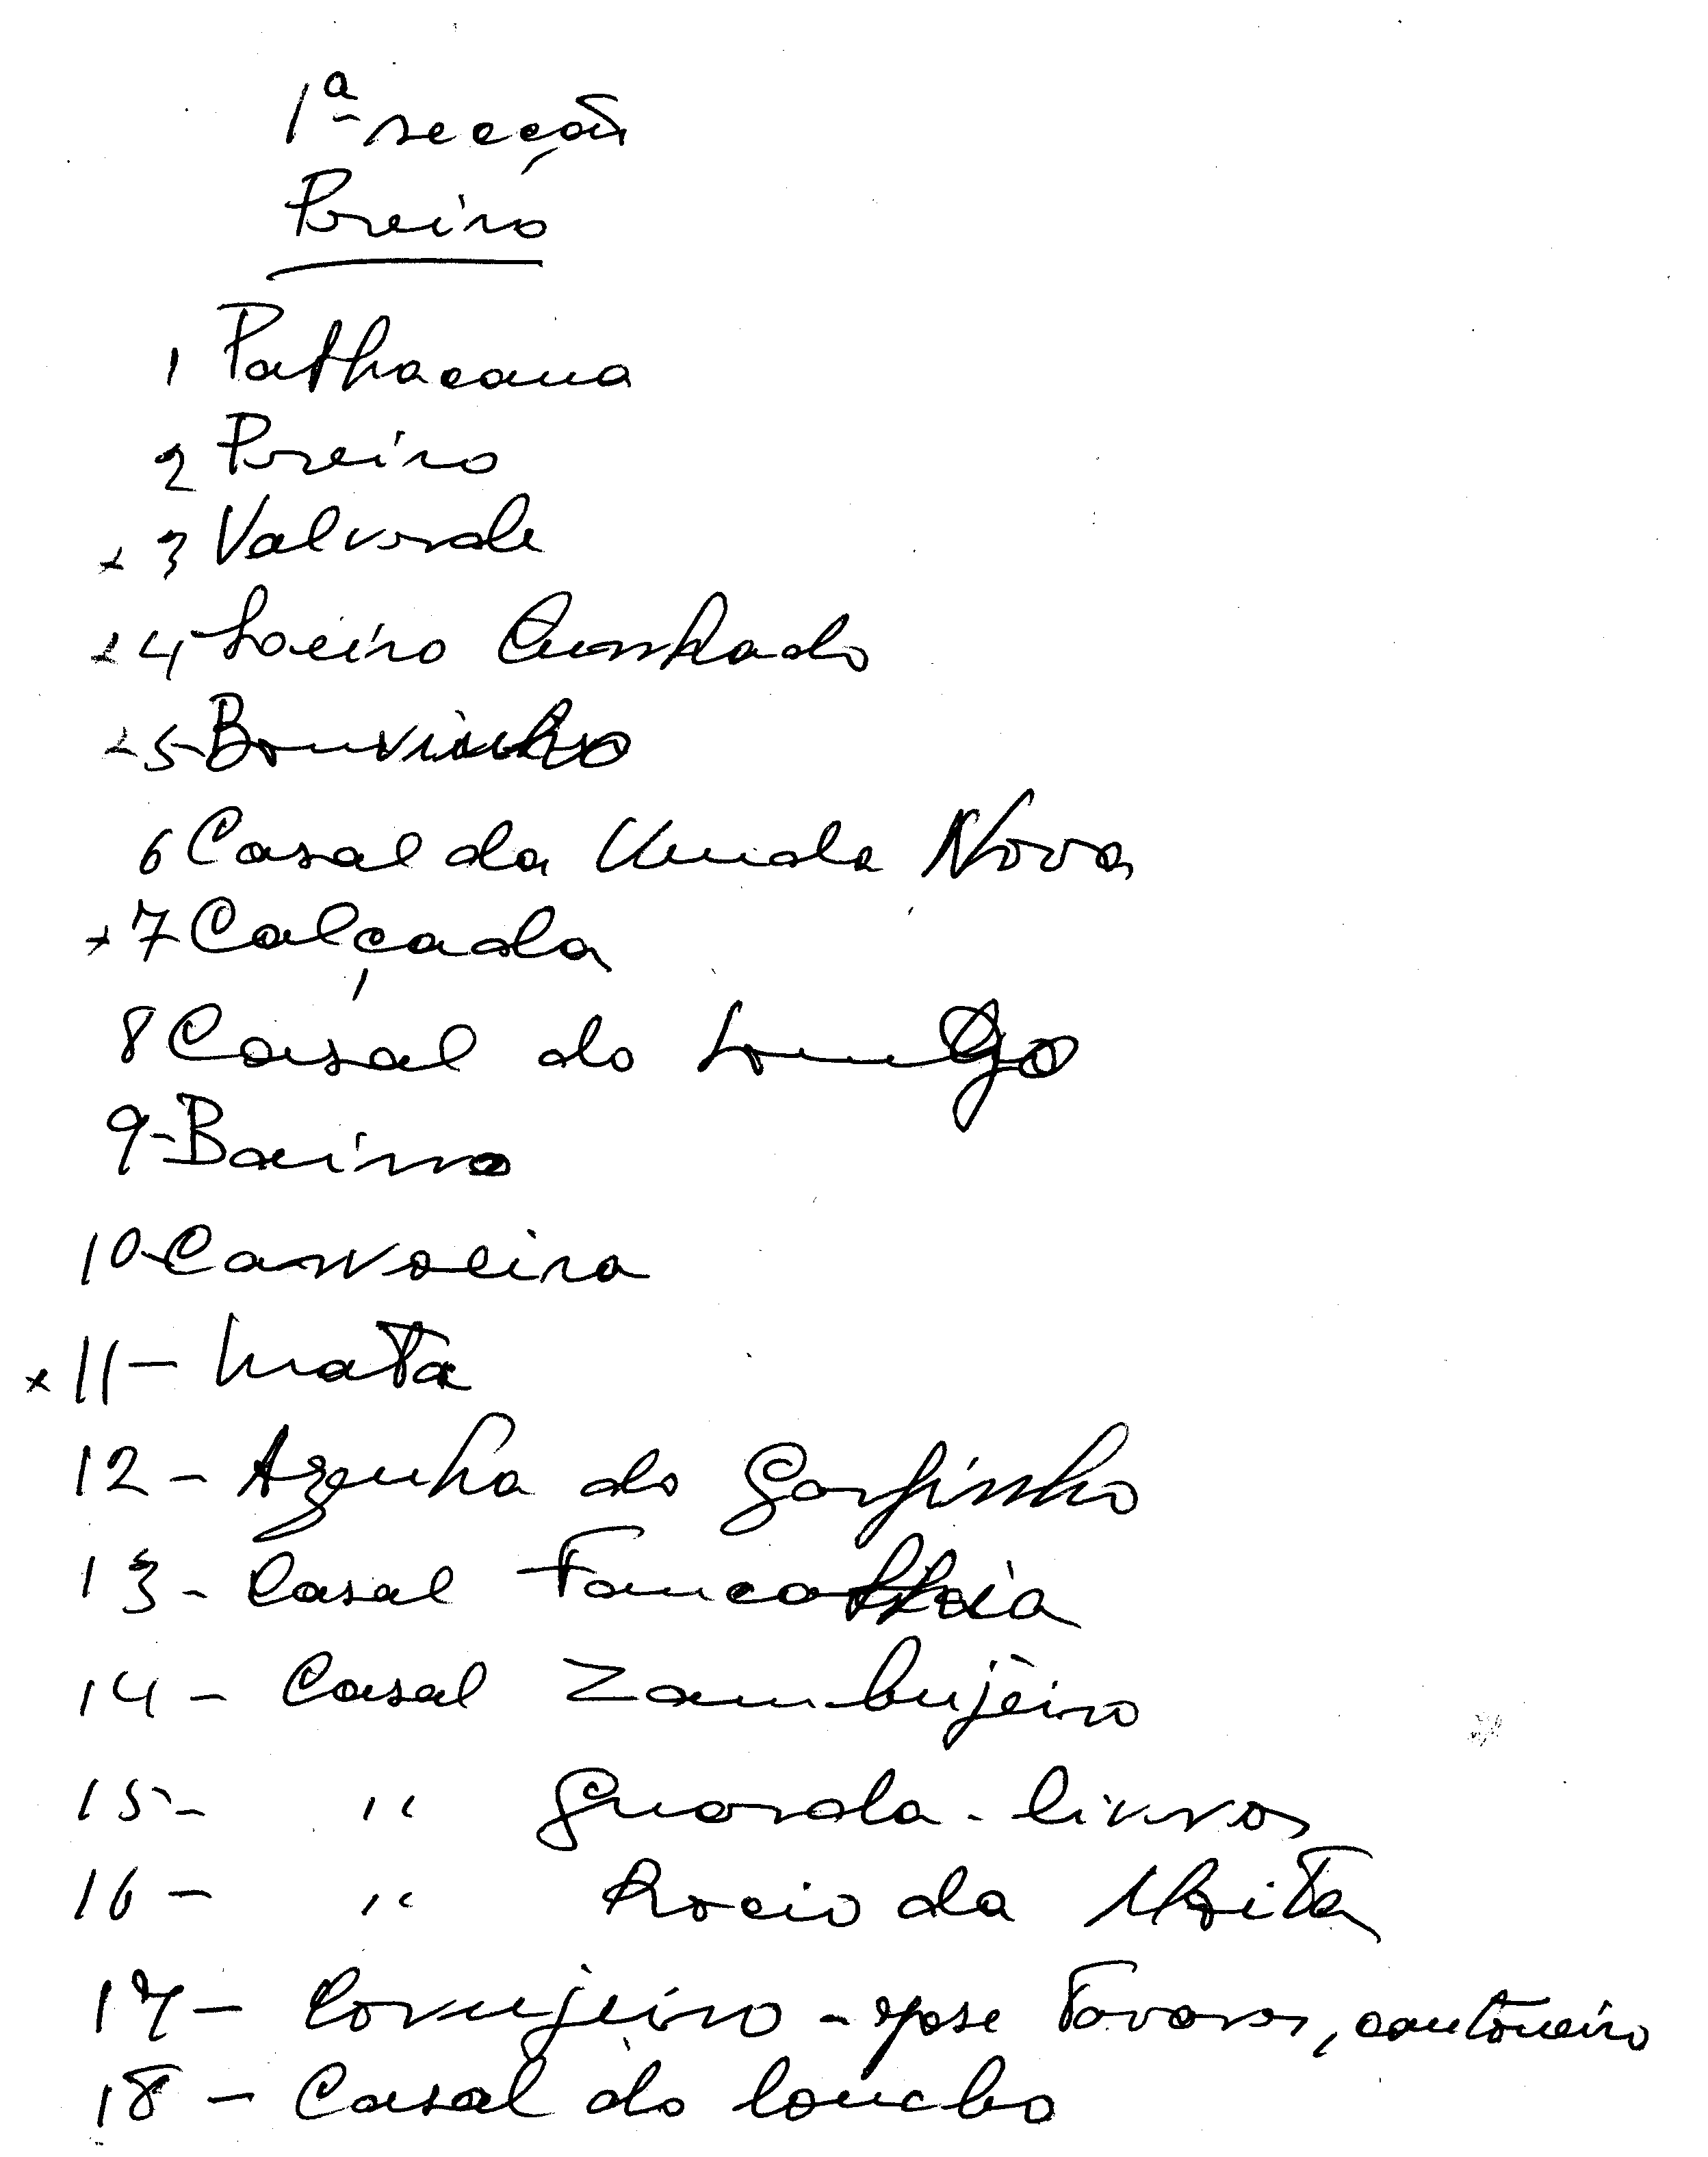 1ª secção
Pereiro
1 Palhacana
2 Pereiro
x 3 Valverde
x 4 Loeiro Cunhado
x 5- Bonvinho
6 Casal da Venda Nova
x 7 Calçada
8 Casal do Longo
9- Bairro
10- Carvoeira
x 11- Mata
12 - Azenha do Garfinho
13 - Casal
14 - Casal Zambujeiro
15 - " Guarda-livros
16 - " Rocio da Moita
17 - Corujeiro - José Tavares, cantoneiro
18 - Casal do